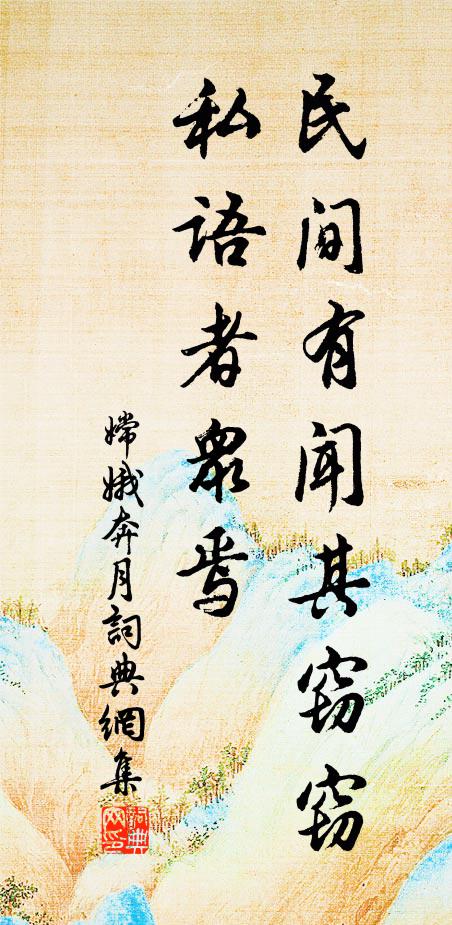 民间有闻其窃窃
私语者众焉
嫦娥奔月词典網集
词典
网印